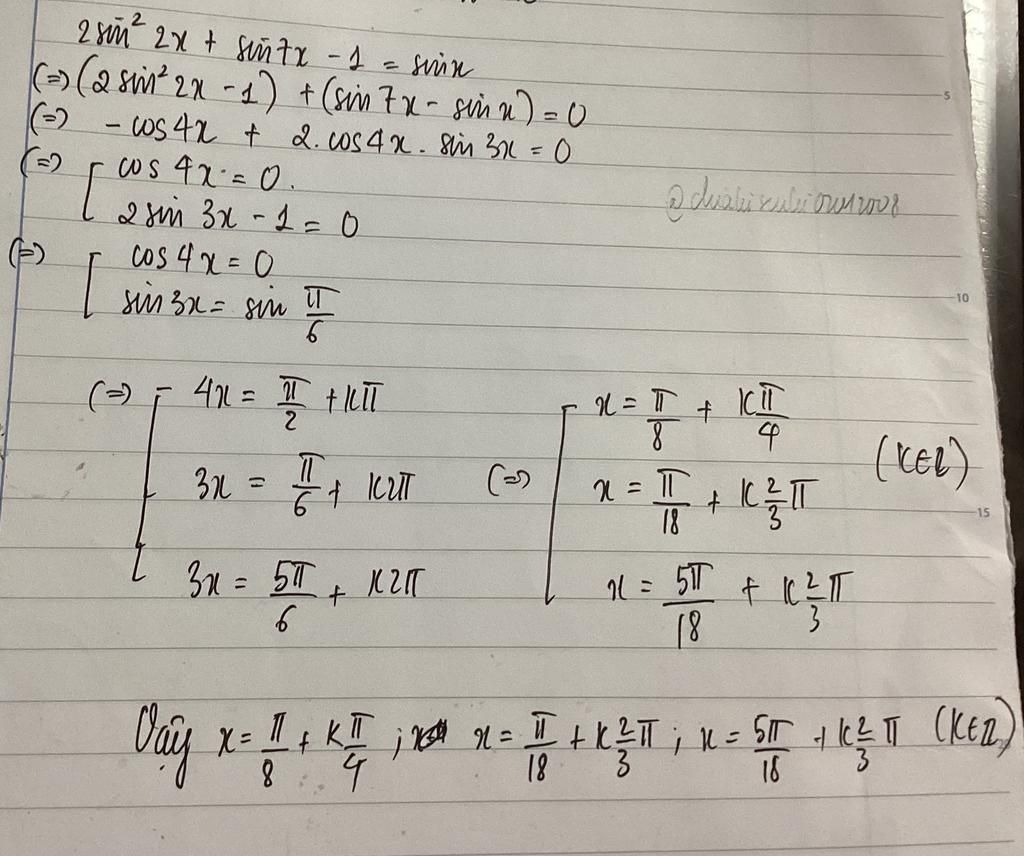 2sin² 2x + sin7x - 1 = sinx
(=) (2 sin² 2x - 1) + (sin 7x - sin x) = 0
(=) - cos 4x + 2. cos 4x. sin 3x = 0
(=) [ cos 4x = 0.
2 sin 3x - 1 = 0
(=) [ cos 4x = 0
sin 3x = sin π/6
(=) [ 4x = π/2 + kπ
3x = π/6 + k2π
3x = 5π/6 + k2π
(=) [ x = π/8 + kπ/4
x = π/18 + k 2/3 π
x = 5π/18 + k 2/3 π
(K∈Z)
Vậy x = π/8 + kπ/4 ; x = π/18 + k 2/3 π ; x = 5π/18 + k 2/3 π (K∈Z)
5
10
15